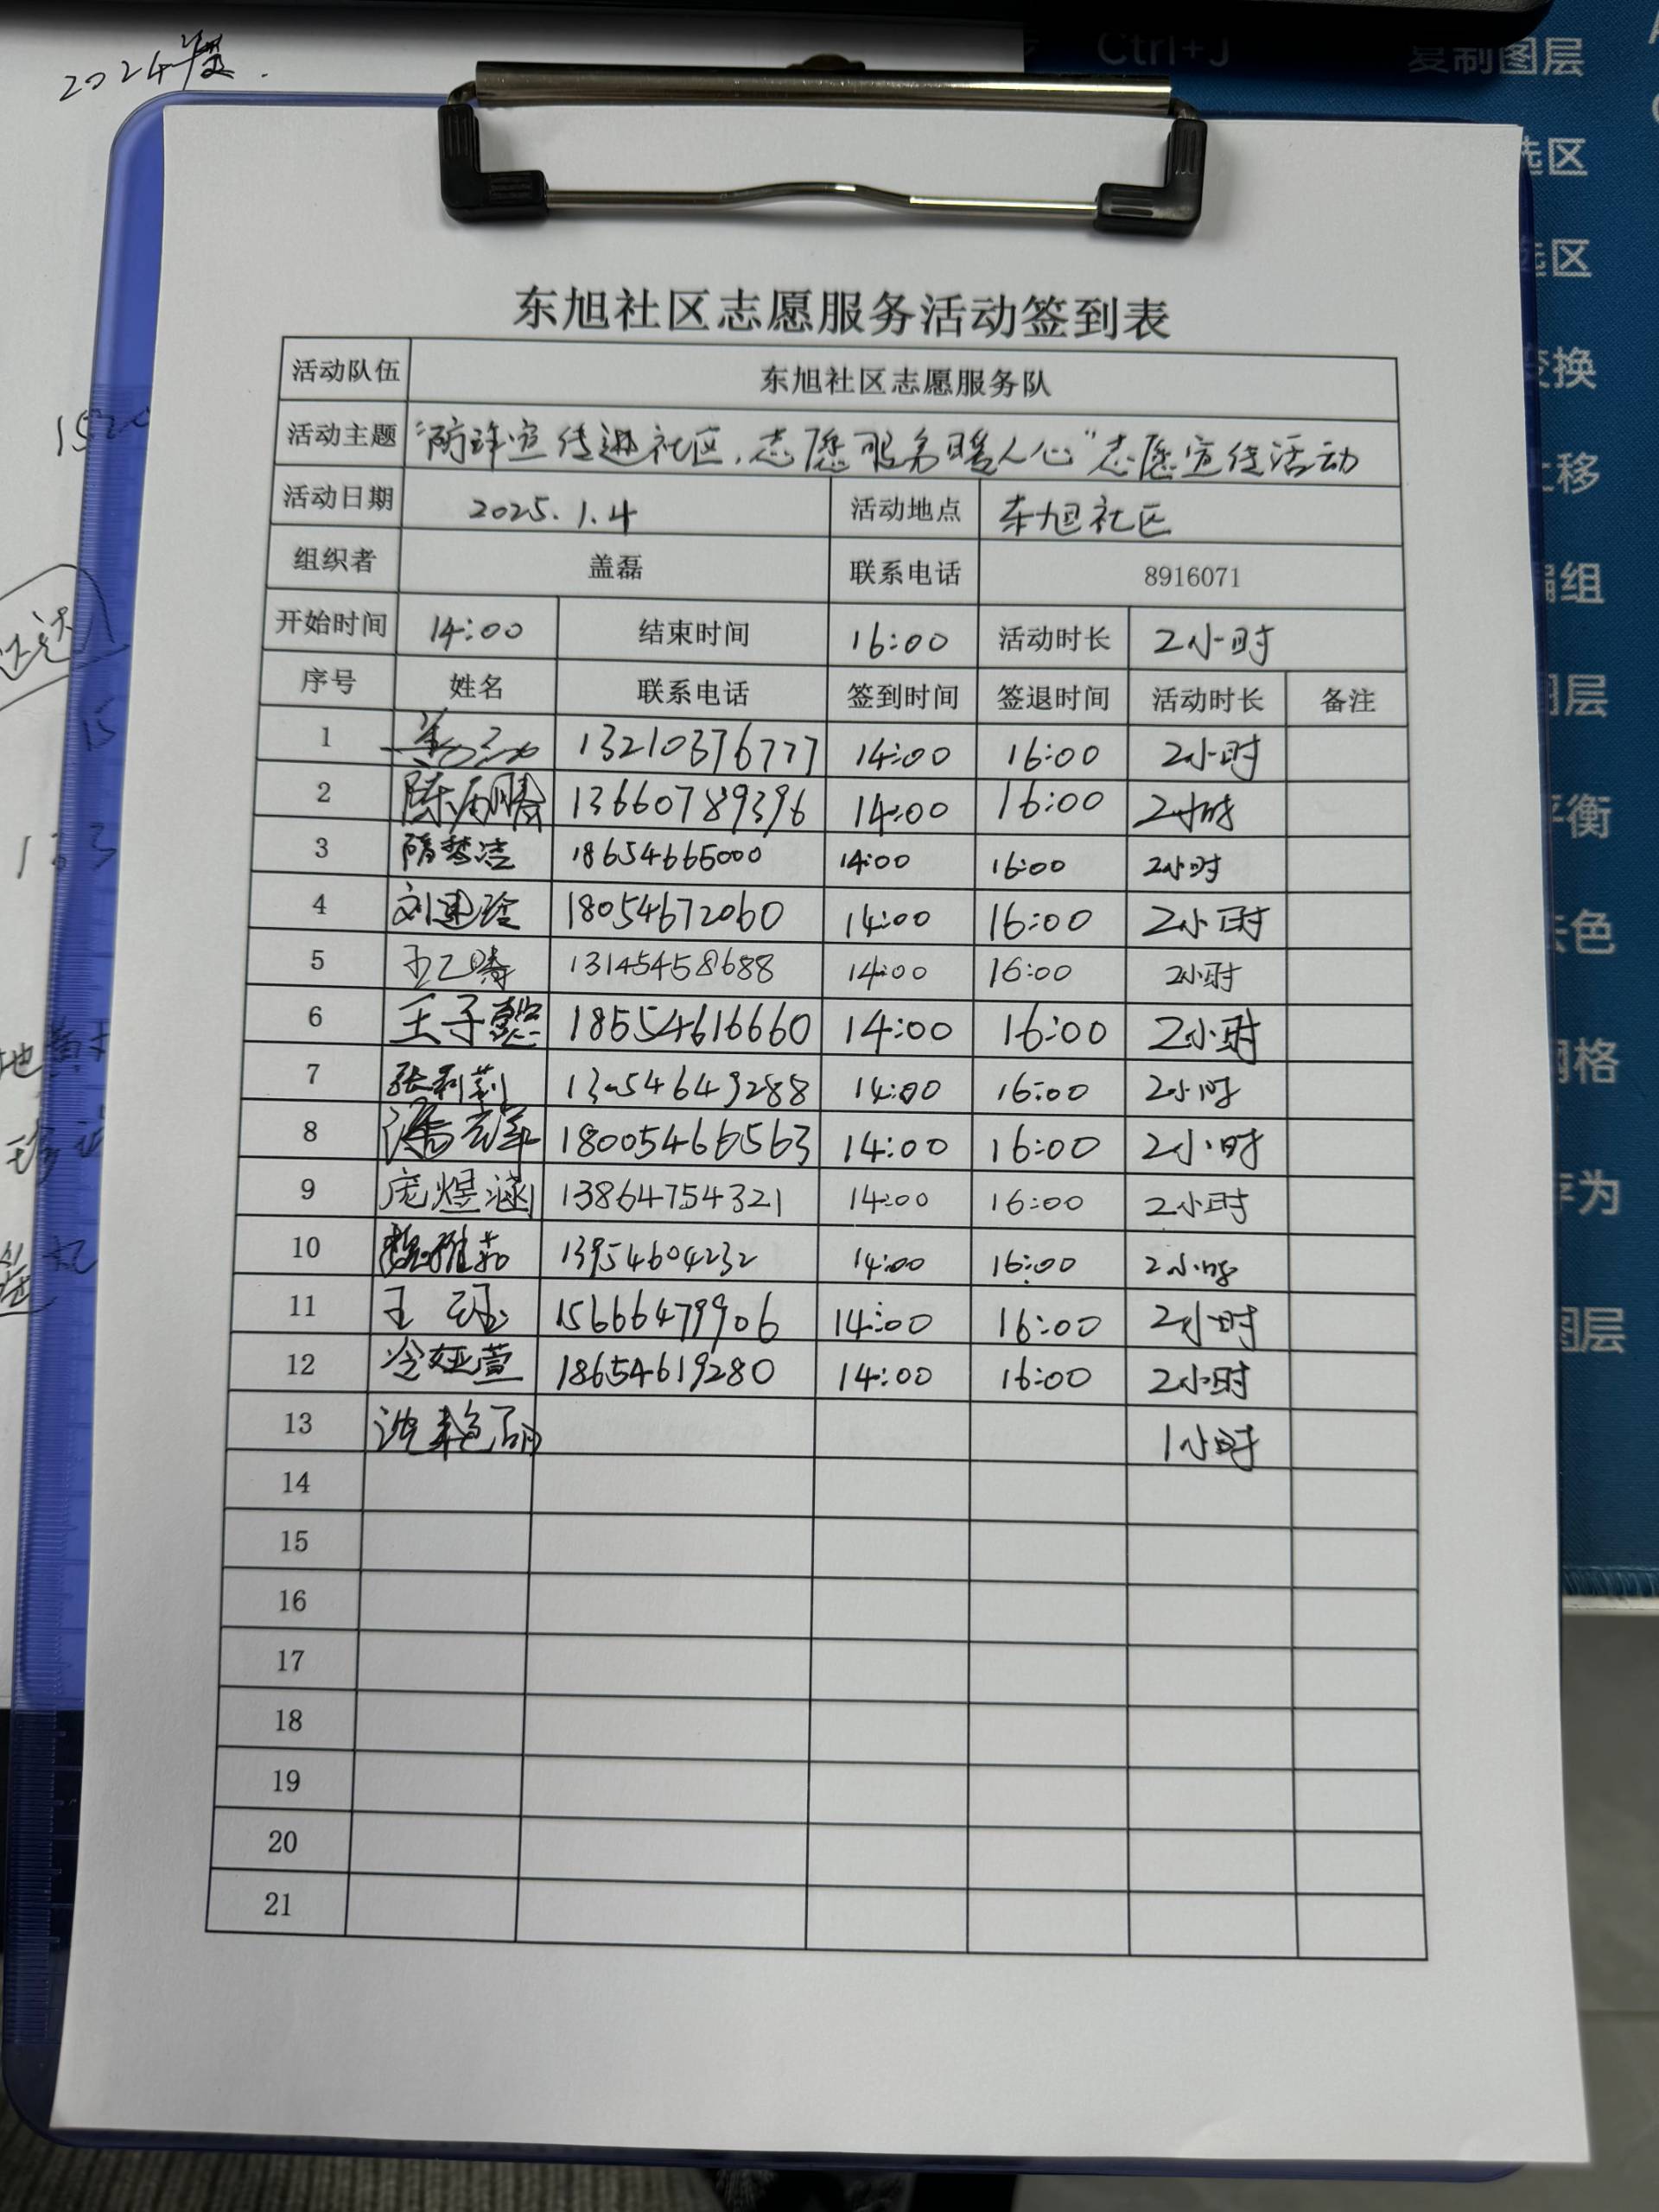 2024年度.
Ctrl+J 复制图层
选区
选区
变换
上移
编组
图层
平衡
去色
网格
存为
图层
东旭社区志愿服务活动签到表
活动队伍 东旭社区志愿服务队
活动主题 “防诈宣传进社区,志愿服务暖人心”志愿宣传活动
活动日期 2025.1.4 活动地点 东旭社区
组织者 盖磊 联系电话 8916071
开始时间 14:00 结束时间 16:00 活动时长 2小时
序号 姓名 联系电话 签到时间 签退时间 活动时长 备注
1 13210376777 14:00 16:00 2小时
2 13660789396 14:00 16:00 2小时
3 隋梦洁 18654665000 14:00 16:00 2小时
4 18054672060 14:00 16:00 2小时
5 13145458688 14:00 16:00 2小时
6 王子懿 18554616660 14:00 16:00 2小时
7 张利莉 14:00 16:00 2小时
8 18005466563 14:00 16:00 2小时
9 庞煜涵 13864754321 14:00 16:00 2小时
10 魏雅茹 13954604232 14:00 16:00 2小时
11 王玉 15666479906 14:00 16:00 2小时
12 冷娅萱 18654619280 14:00 16:00 2小时
13 沈艳丽 1小时
14
15
16
17
18
19
20
21